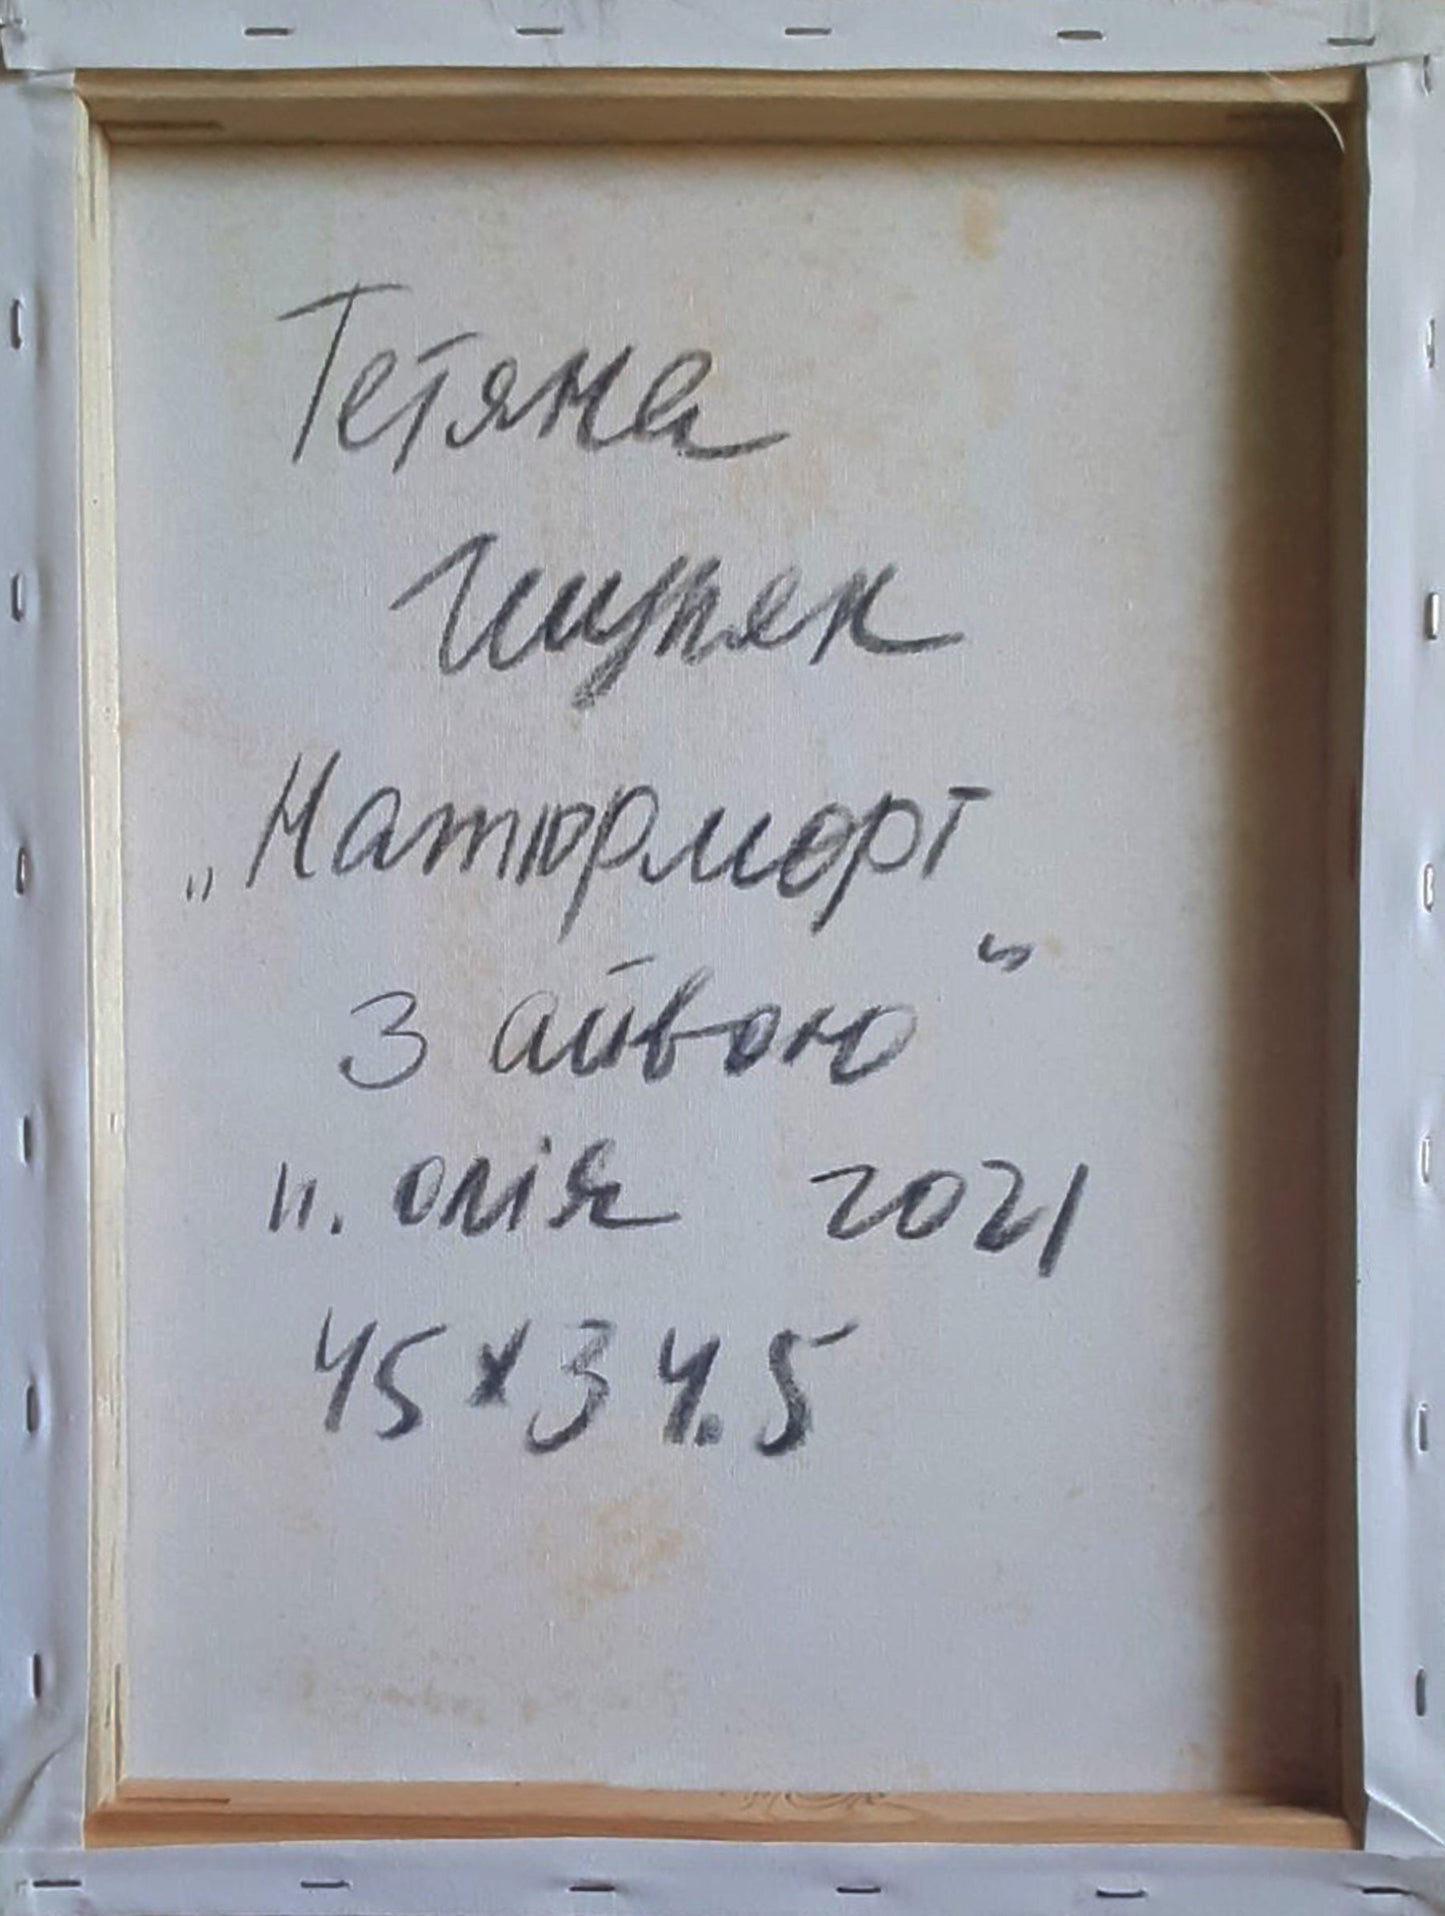 Тетяна
„Натюрморт
з айвою”
п. олія 2021
45×34.5